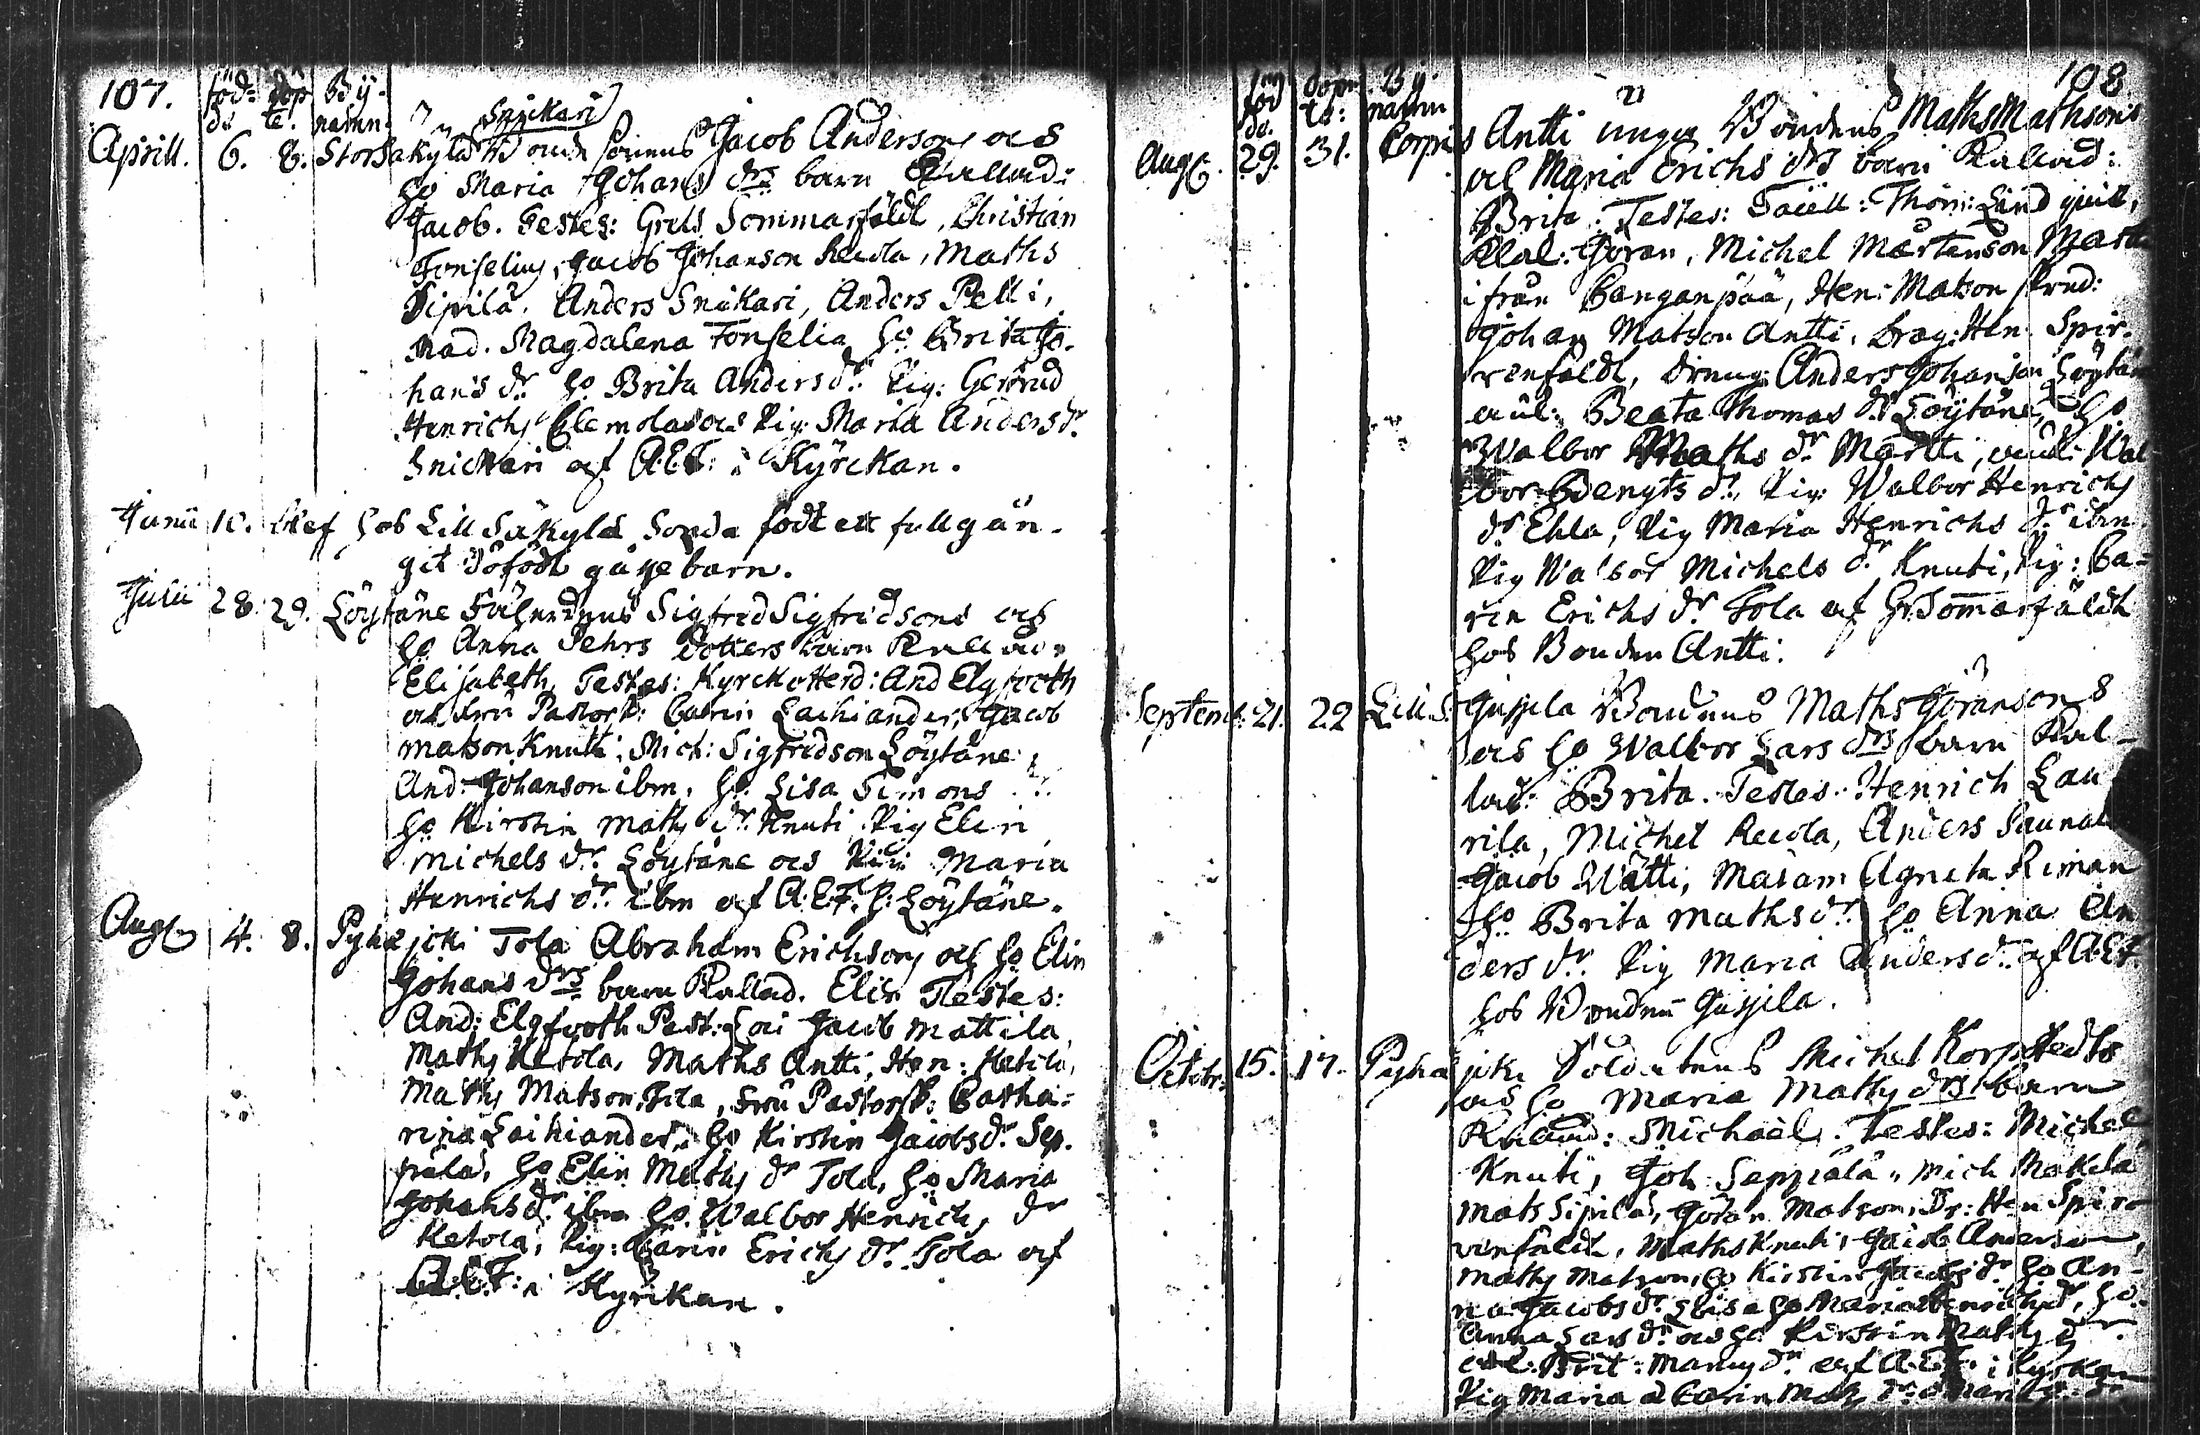 107. föd= döp By-
de te. namn
Snickari
Aprill. 6. 8. Storsäkylä Bonde sonens Jacob Andersons och
ho Maria Johans drs barn Kallad:
Jacob. Testes: Grels Sommarfäldt, Christian
Fonselius, Jacob Johanson Recola, Maths
Sipilä. Anders Snickari, Anders Pelli,
Mad. Magdalena Fonselia ho Brita Jo-
hans dr ho Brita Anders dr Pig: Gertrud
Henrichs Elemola och Pig: Maria Anders dr
Snickari af A.E.F: i Kyrckan.
Junii 10. blef hos Lill Säkylä födt ett fullgån-
git döfödt barn.
Julii 28. 29. Löytäne Sigfred Sigfredsons och
ho Anna Pehrs dotters barn Kallad:
Elisabeth, Testes: Kyrckoherd: And Elgfooth
och Fru Pastorsk: Catrin Lachiander, Jacob
Matson Knuti, Mich: Sigfredson Löytäne
And: Johanson ibm, ho Lisa Simons dr
ho Kirstin Maths dr Knuti Pig Elin
Michels dr Löytäne och Pig: Maria
Henrichs dr ibm af A.E.F. h: Löytäne.
Aug 4. 8. Pyhäjcki Tola Abraham Erichsons och ho Elin
Johans drs barn Kallad. Elin Testes:
And: Elgfooth Past: Loci Jacob Mattila,
Maths Ketola, Maths Antti, Hen: Ketola,
Maths Matson Tola, Fru Pastorsk: Catha-
rina Lachiander, ho Kirstin Jacobs dr Sep-
pälä, ho Elin Maths dr Tola, ho Maria
Johans dr ibm ho Walbor Henrichs dr
Ketola, Pig: Carin Erichs dr Tola af
A.E.F: i Kyrckan.
108
föd döpn By-
de. te: namn
Aug 29. 31. Corpi Antti unga Bondens Maths Mathsons
och Maria Erichs drs barn Kallad:
Brita. Testes: Thom: Lindquist,
Göran, Michel Mårtenson
ifrån Canganpää, Hen: Matson
Johan Matson Antti, Drag: Hen: Spir-
renfäldt, Dreng: Anders Johanson Löytäne
Beata Thomas dr Löytäne, ho
Walbor Maths dr Martti, Wal-
bor Bengts dr, Pig: Walbor Henrichs
dr Ehla, Pig Maria Henrichs dr ibm
Pig Walbor Michels dr Knuti, Pig: Ca-
rin Erichs dr Tola af Gr: Sommarfäldt
hos Bonden Antti.
Septemb: 21. 22 Lill S. Jussila Bondens Maths Göransons
och ho Walbor Lars drs barn Kal-
lad: Brita. Testes: Henrich Lau
rila, Michel Recola, Anders
Jacob Wätti, Madam Agneta Riman
ho Brita Maths dr ho Anna An
ders dr Pig Maria Anders dr af A.E.F.
hos Bonden Jussila.
Octobr: 15. 17. Pyhäjcki Soldatens Michel Korphedts
och ho Maria Maths drs barn
Kallad: Michaël. Testes: Michel
Knuti, Joh: Seppälä, Mich Mäkilä
Mats Sipilä, Göran Matson, Dr: Hen Spir-
renfäldt, Maths Knuti, Jacob Anderson,
Maths Matson, ho Kirstin Jacobs dr ho An-
na Jacobs dr ho Maria Henrichs dr, ho
Anna Lars dr och ho Kirstin Maths dr
Brit: dr af A.E.F. i Kyrckan
Pig Maria Carin Maths dr